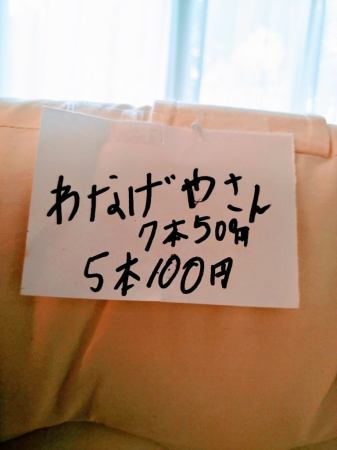 わなげやさん
7本50円
5本100円